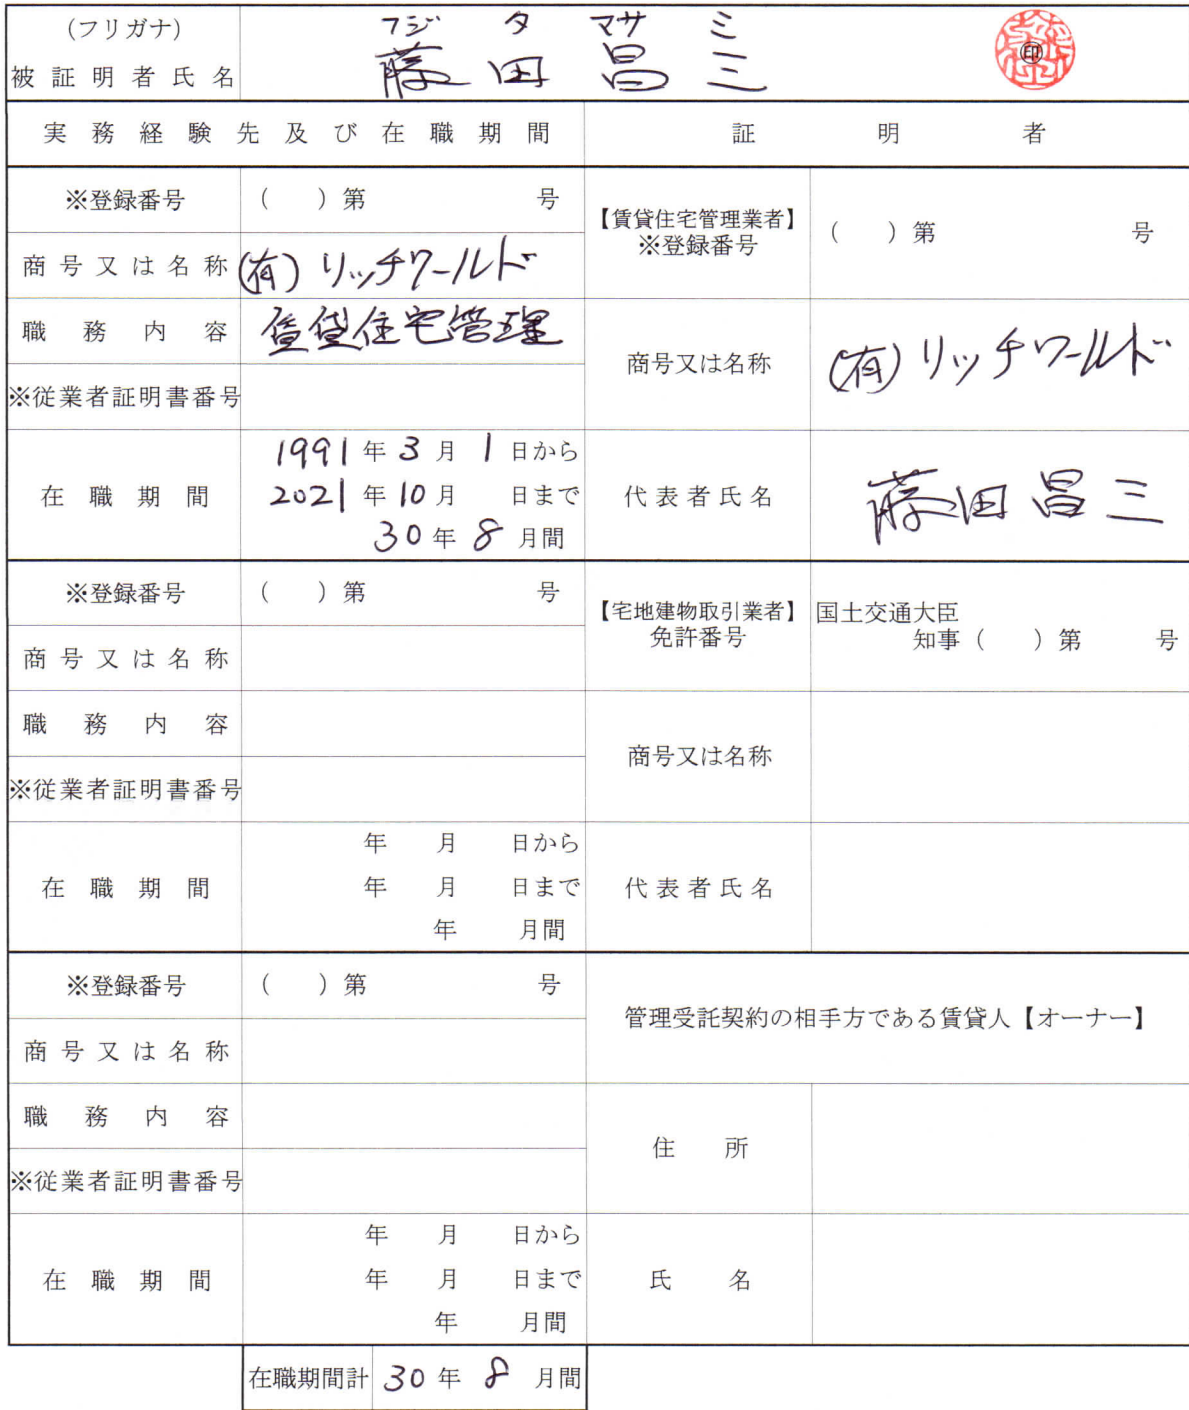 (フリガナ) フジ タ マサ ミ
被証明者氏名 藤田昌三 印
実務経験先及び在職期間 証明者
※登録番号 ( )第 号
【賃貸住宅管理業者】
※登録番号 ( )第 号
商号又は名称 (有)リッチワールド
職務内容 賃貸住宅管理
商号又は名称 (有)リッチワールド
※従業者証明書番号
在職期間
1991年3月1日から
2021年10月 日まで
30年8月間
代表者氏名 藤田昌三
※登録番号 ( )第 号
【宅地建物取引業者】
免許番号
国土交通大臣
知事( )第 号
商号又は名称
職務内容
商号又は名称
※従業者証明書番号
在職期間
年 月 日から
年 月 日まで
年 月間
代表者氏名
※登録番号 ( )第 号
管理受託契約の相手方である賃貸人【オーナー】
商号又は名称
職務内容
住所
※従業者証明書番号
在職期間
年 月 日から
年 月 日まで
年 月間
氏名
在職期間計 30年8月間